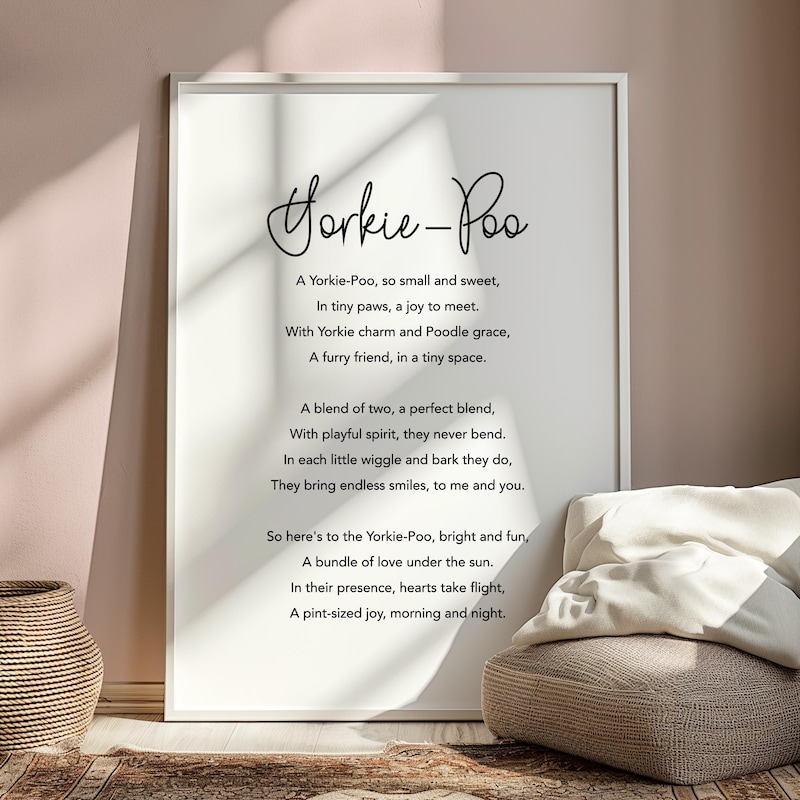 Yorkie-Poo
A Yorkie-Poo, so small and sweet,
In tiny paws, a joy to meet.
With Yorkie charm and Poodle grace,
A furry friend, in a tiny space.
A blend of two, a perfect blend,
With playful spirit, they never bend.
In each little wiggle and bark they do,
They bring endless smiles, to me and you.
So here's to the Yorkie-Poo, bright and fun,
A bundle of love under the sun.
In their presence, hearts take flight,
A pint-sized joy, morning and night.